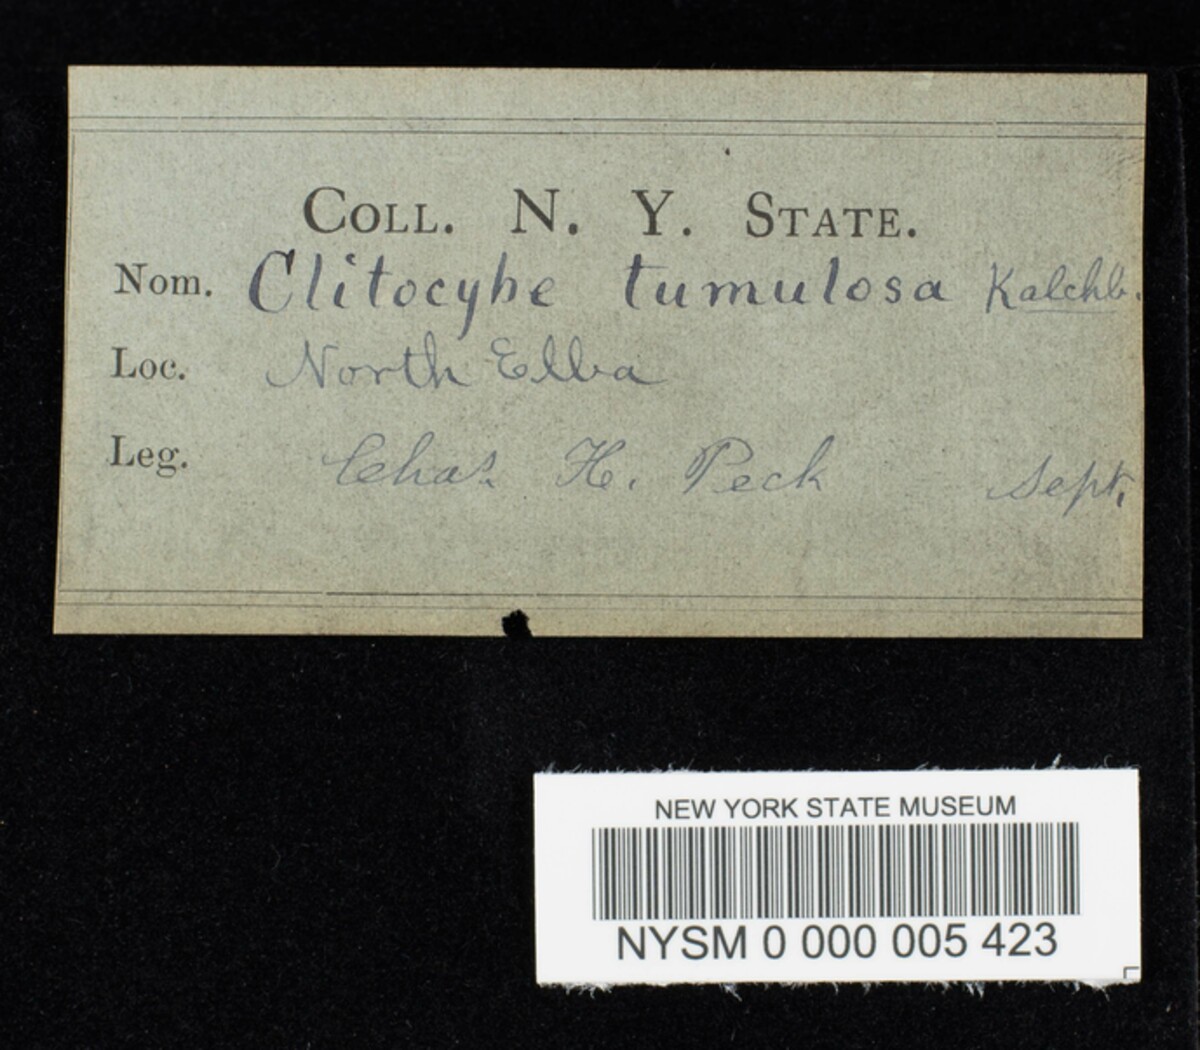 COLL. N. Y. STATE.
Nom. Clitocybe tumulosa Kalchb.
Loc. North Elba
Leg. Chas. H. Peck Sept.
NEW YORK STATE MUSEUM
NYSM 0 000 005 423